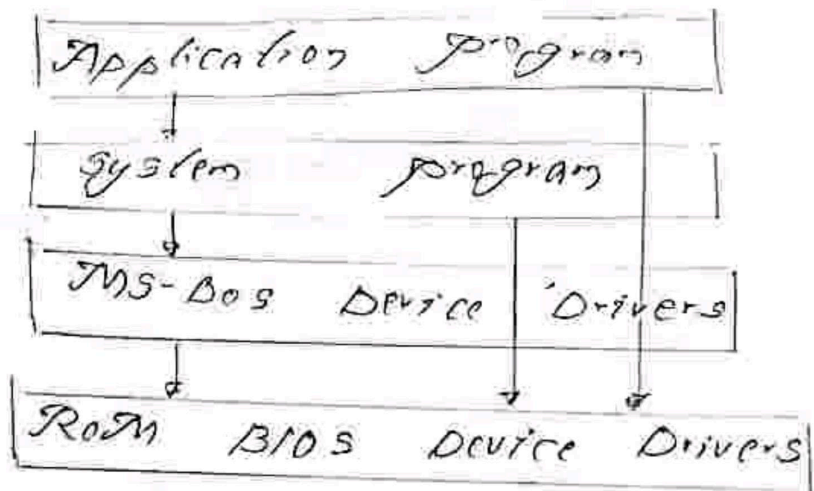 Application Program
System program
MS-Dos Device Drivers
RoM BIOS Device Drivers